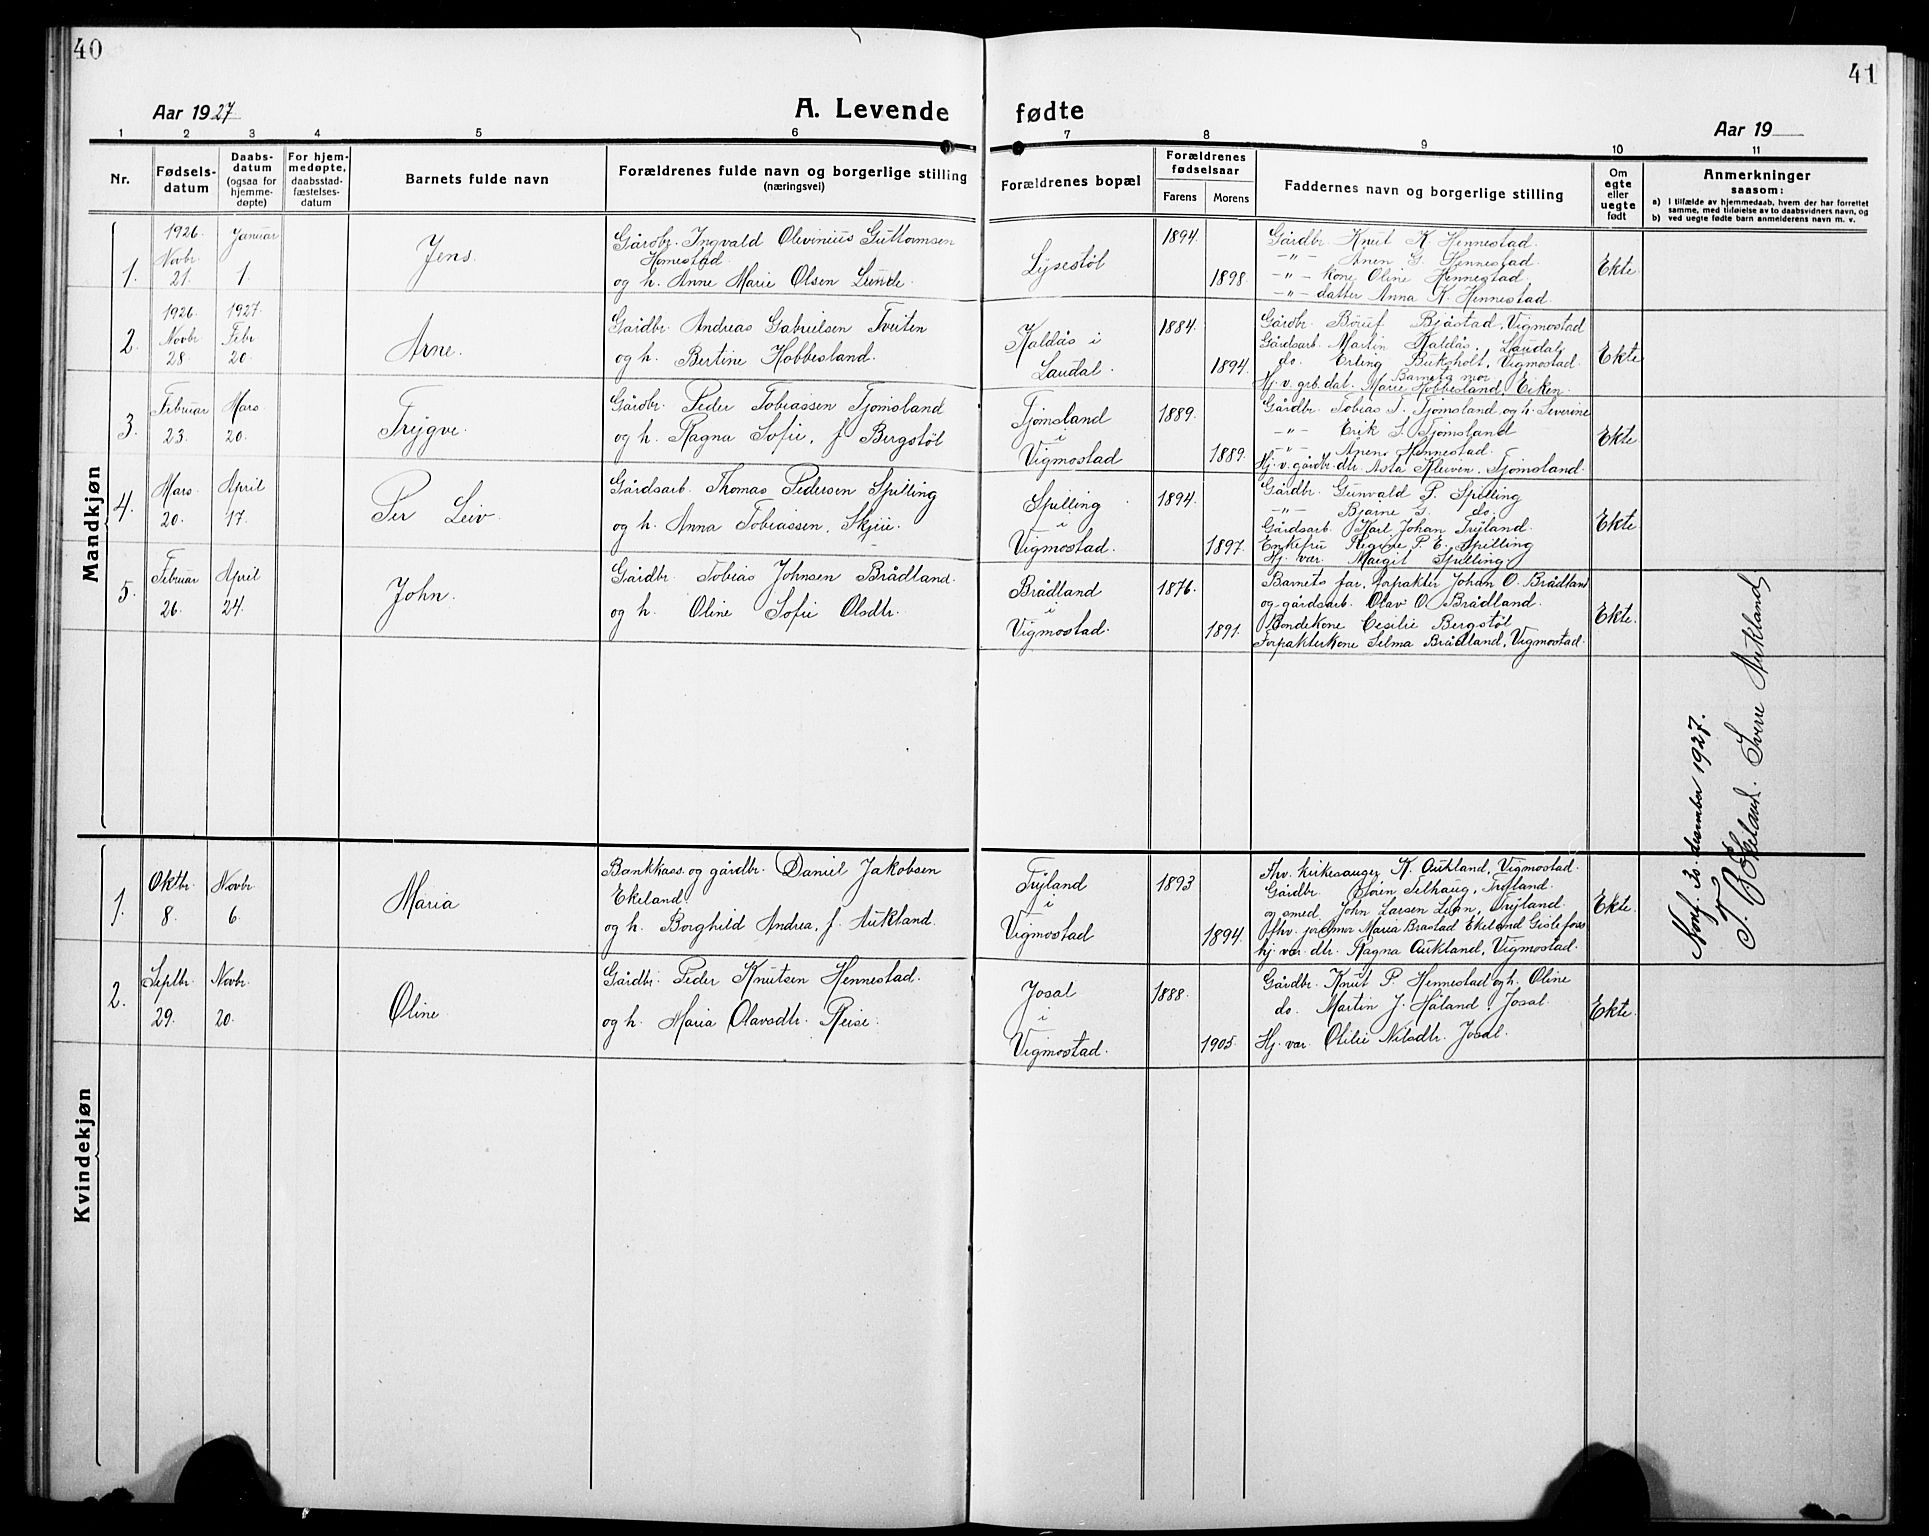 40
41
Aar 1927
A. Levende fødte
Aar 19
1 2 3 4 5 6 7 8 9 10 11
Nr.
Fødsels-
datum
Daabs-
datum
(ogsaa for
hjemme-
døpte)
For hjem-
medøpte,
daabsstad-
fæstelses-
datum
Barnets fulde navn
Forældrenes fulde navn og borgerlige stilling
(næringsvei)
Forældrenes bopæl
Forældrenes
fødselsaar
Farens Morens
Faddernes navn og borgerlige stilling
Om
egte
eller
uegte
født
Anmerkninger
saasom:
a) I tilfælde av hjemmedaab, hvem der har forrettet
samme, med tilføielse av to daabsvidners navn, og
b) ved uegte fødte barn anmelderens navn m. v.
Mandkjøn
1.
1926.
Novbr.
21.
Januar
1.
Jens.
Gårdbr. Ingvald Olivinius Guttormsen
Homestad
og h. Anne Marie Olsen Lunde.
Lysestöl
1894.
1898.
Gårdbr. Knut K. Hennestad.
-"- Anen G. Hennestad.
-"- kone Oline Hennestad
-"- datter Anna K. Hennestad.
Ekte
2.
1926.
Novbr.
28
1927.
Febr.
20.
Arne.
Gårdbr. Andreas Gabrielsen Tveiten
og h. Bertine Hobbesland.
Kaldås i
Laudal.
1884.
1894.
Gårdbr. Bjåstad, Vigmostad
Gårdsarb. Martin Kaldås, Laudal.
do. Erling Buksholt, Vigmostad.
Barnets mor
Hj. v. grb. dat. Marie Hobbesland, Eiken.
Ekte
3.
Februar
23.
Mars.
20.
Trygve.
Gårdbr. Peder Tobiassen Tjomsland
og h. Ragna Sofie, f. Bergstöl
Tjomsland
i
Vigmostad
1889.
1889.
Gårdbr. Tobias T. Tjomsland og h. Severine
-"- Erik S. Tjomsland
-"- Anen Hennestad.
Hj. v. gårdbr. dtr. Asta Kleiven, Tjomsland.
Ekte
4.
Mars.
20.
April
17.
Per Leiv.
Gårdsarb. Thomas Pedersen Spilling
og h. Anna Tobiassen, Skjeie.
Spilling
i
Vigmostad.
1894.
1897.
Gårdbr. Gunvald P. Spilling
-"- Bjarne G. do.
Gårdsarb. Karl Johan Tryland.
Enkefru Regine P. E. Spilling
Hj. vær. Margit Spilling.
Ekte
5.
Februar
26.
April
24.
John.
Gårdbr. Tobias Johnsen Brådland.
og h. Oline Sofie Olsdtr.
Brådland
i
Vigmostad.
1876.
1891.
Barnets far, forpakter Johan O. Brådland
og gårdsarb. Olav O. Brådland.
Bondekone Cesilie Bergstöl
Forpakterkone Selma Brådland, Vigmostad.
Ekte.
Konf. 30. desember 1927.
Ekeland. Sverre Aukland
Kvindekjøn
1.
Oktbr.
8.
Novbr.
6.
Maria
Bankkass. og gårdbr. Daniel Jakobsen
Ekeland
og h. Borghild Andrea, f. Aukland.
Tryland
i
Vigmostad
1893
1894.
Fhv. kirkesanger K. Aukland, Vigmostad.
Gårdbr. Telhaug, Tryland.
og smed. John Larsen Lian, Tryland.
fhv. jordmor Maria Brastad Ekeland Gislefoss
hj. vær. dtr. Ragna Aukland, Vigmostad.
Ekte.
2.
Septbr.
29.
Novbr.
20.
Oline.
Gårdbr. Peder Knutsen Hennestad.
og h. Maria Olavsdtr. Reise.
Josal
i
Vigmostad.
1888.
1905.
Gårdbr. Knut P. Hennestad og h. Oline
do. Martin J. Håland, Josal.
Hj. vær. Otilie Nilsdtr. Josal.
Ekte.